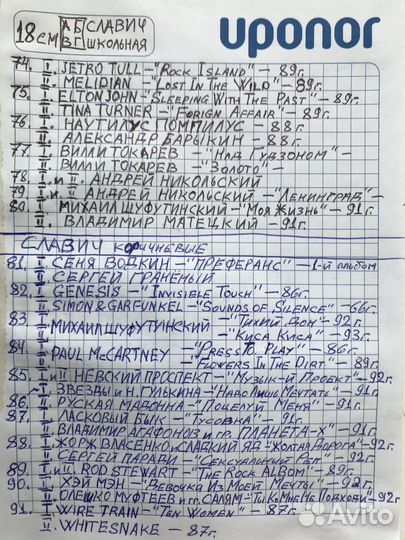 18 см АБ ВГ СЛАВИЧ ШКОЛЬНАЯ
uponor
74. I. JETRO TULL – "ROCK ISLAND" – 89г.
II. MELIDIAN – "LOST IN THE WILD" – 89г.
75. I. ELTON JOHN – "SLEEPING WITH THE PAST" – 89г.
II. TINA TURNER – "FORIGN AFFAIR" – 89г.
76. I. НАУТИЛУС ПОМПИЛУС – 88г.
II. АЛЕКСАНДР БАРЫКИН – 88г.
77. I. ВИЛЛИ ТОКАРЕВ – "НАД ГУДЗОНОМ" –
II. ВИЛЛИ ТОКАРЕВ – "ЗОЛОТО" –
78. I. и II. АНДРЕЙ НИКОЛЬСКИЙ
79. I. и II. АНДРЕЙ НИКОЛЬСКИЙ – "ЛЕНИНГРАД" –
80. I. МИХАИЛ ШУФУТИНСКИЙ – "МОЯ ЖИЗНЬ" – 91г.
II. ВЛАДИМИР МАТЕЦКИЙ – 91г.
СЛАВИЧ КОРИЧНЕВЫЕ
81. I. СЕНЯ ВОДКИН – "ПРЕФЕРАНС" – 1-й альбом
II. СЕРГЕЙ ГРАНЁНЫЙ
82. I. GENESIS – "INVISIBLE TOUCH" – 86г.
II. SIMON & GARFUNKEL – "SOUNDS OF SILENCE" – 66г.
83. I. МИХАИЛ ШУФУТИНСКИЙ – "ТИХИЙ ДОН" – 92г.
II. – "КИСА КИСА" – 93г.
84. I. PAUL McCARTNEY – "PRESS TO PLAY" – 86г.
II. – "FLOWERS IN THE DIRT" – 89г.
85. I. и II НЕВСКИЙ ПРОСПЕКТ – "МУЗЫК-Й ПРОЕКТ" – 92г.
86. I. ЗВЕЗДЫ и Н. ГУЛЬКИНА – "НАДО ЛИШЬ МЕЧТАТЬ" – 91г.
II. РУССКАЯ МАДОННА – "ПОЦЕЛУЙ МЕНЯ" – 91г.
87. I. ЛАСКОВЫЙ БЫК – "ТУСОВКА" – 91г.
II. ВЛАДИМИР АГАФОНОВ и гр. ПЛАНЕТА-Х" – 91г.
88. I. ЖОРЖ ВЛАСЕНКО и СЛАДКИЙ ЯД – "ЖОЛТАЯ ДОРОГА" – 92г.
II. СЕРГЕЙ ПАРАДИ – "СЕКСУАЛЬНЫЙ РЭП" – 92г.
89. I. и II. ROD STEWART – "THE ROCK ALBUM" – 89г.
90. I. ХЭЙ МЭН – "ДЕВОЧКА ИЗ МОЕЙ МЕЧТЫ" – 92г.
II. ОЛЕШКО МУФТЕЕВ и гр. САЛЯМ – "ТЫ КО МНЕ НЕ ПОДХОДИ" – 92г.
91. I. WIRE TRAIN – "TEN WOMEN" – 87г.
II. WHITESNAKE – 87г.
Avito